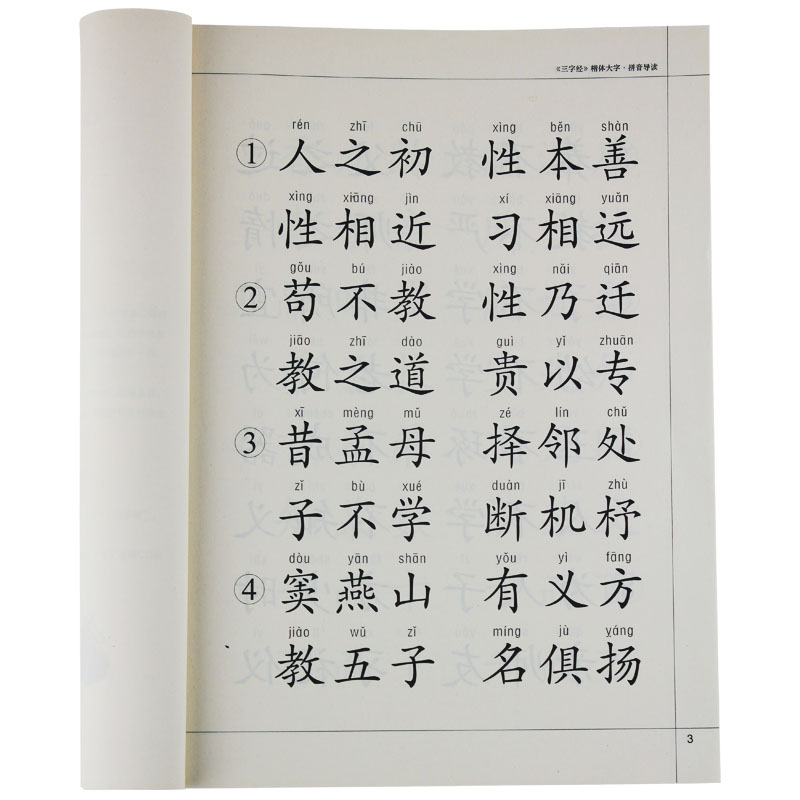 《三字经》楷体大字·拼音导读
rén zhī chū xìng běn shàn
① 人之初 性本善
xìng xiāng jìn xí xiāng yuǎn
性相近 习相远
gǒu bú jiào xìng nǎi qiān
② 苟不教 性乃迁
jiāo zhī dào guì yǐ zhuān
教之道 贵以专
xī mèng mǔ zé lín chǔ
③ 昔孟母 择邻处
zǐ bù xué duàn jī zhù
子不学 断机杼
dòu yān shān yǒu yì fāng
④ 窦燕山 有义方
jiào wǔ zǐ míng jù yáng
教五子 名俱扬
3